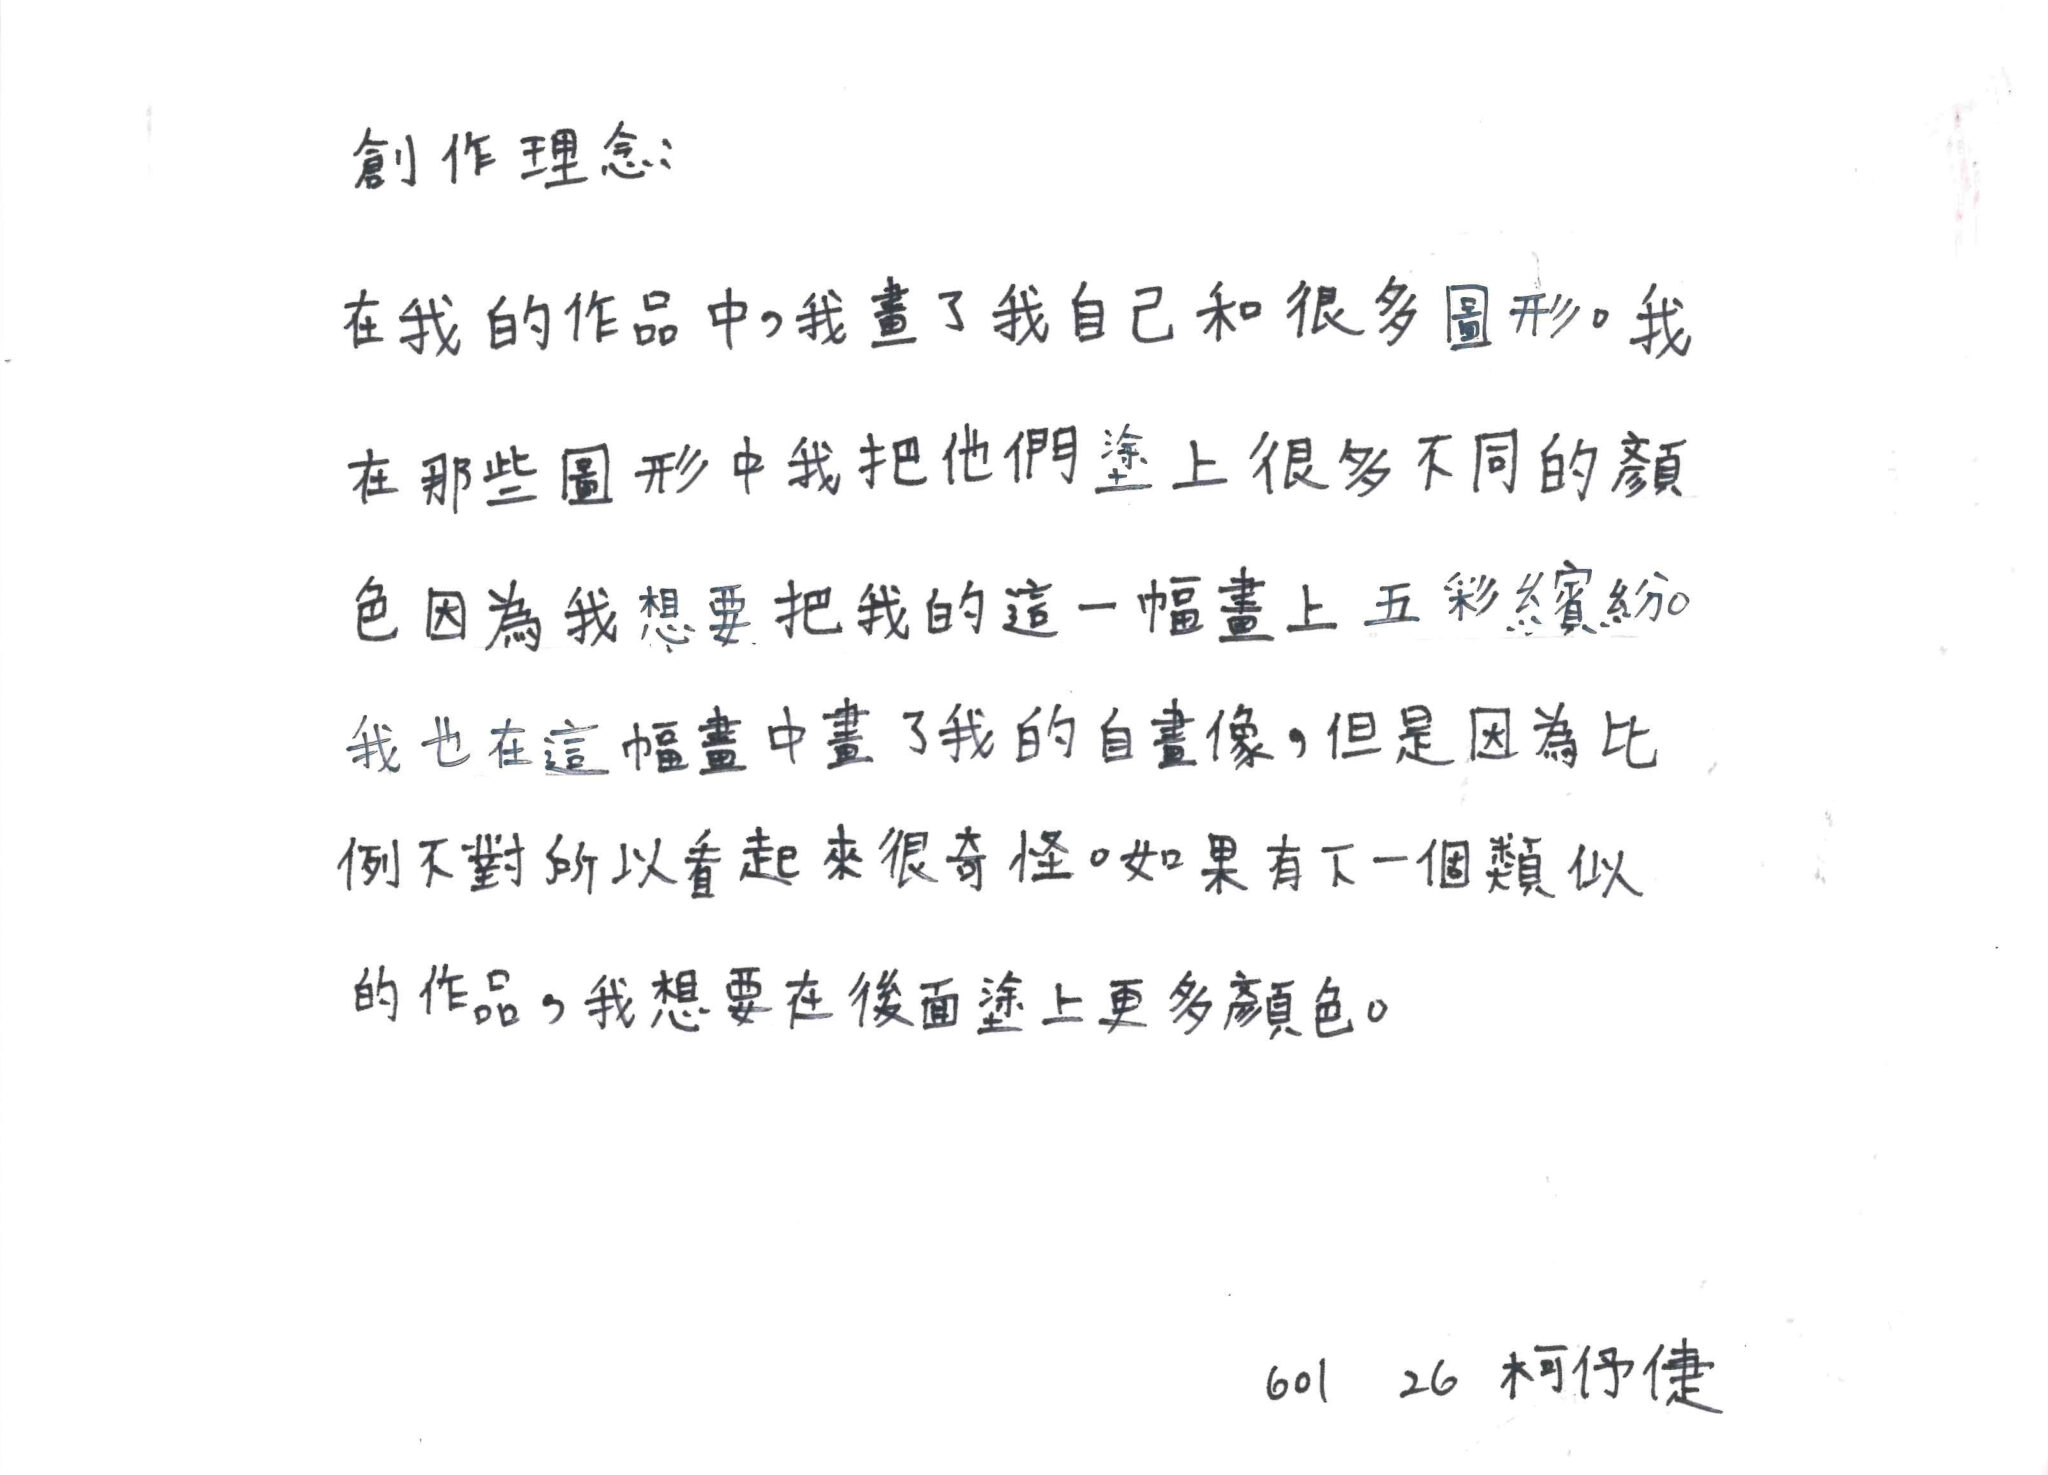 創作理念：
在我的作品中，我畫了我自己和很多圖形。我
在那些圖形中我把他們塗上很多不同的顏
色因為我想要把我的這一幅畫上五彩繽紛。
我也在這幅畫中畫了我的自畫像，但是因為比
例不對所以看起來很奇怪。如果有下一個類似
的作品，我想要在後面塗上更多顏色。
601 26 柯伃倢